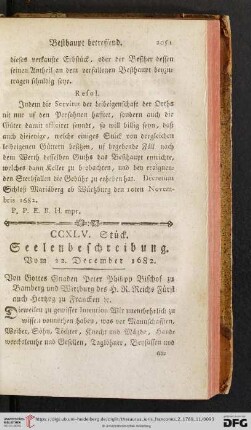 Besthaupt betreffend. 2051
dieses verkaufte Erbstück, oder der Besitzer dessen
seinen Antheil an dem verfallenen Besthaupt beyzu-
tragen schuldig seye.
Resol.
Indem die Servitut der leibeigenschaft der Orthen
nit nur auf den Persohnen haftet, sondern auch die
Güter damit afficiret seynd, so will billig seyn, daß
auch diejenige, welche einiges Stück von dergleichen
leibeigenen Güttern besitzen, uf begebende Fäll nach
dem Werth desselben Guths das Besthaupt entrichte,
welches dann Keller zu beobachten, und den ereigneten
Sterbfällen die Gebühr zu ersehen hat. Decretum
Schloß Mariäberg ob Würzburg den 10ten Novem-
bris 1682.
P. P. E. E. H. mpr.
CCXLV. Stück.
Seelenbeschreibung.
Vom 12. December 1682.
Von Gottes Gnaden Peter Philipp Bischof zu
Bamberg und Würzburg des H. R. Reichs Fürst
auch Hertzog zu Francken ec.
Dieweilen zu gewisser Intention Wir unentbehrlich zu
wissen vonnöthen haben, was vor Mannschafften,
Weiber, Söhn, Töchter, Knecht und Mägde, Hand-
werckesleuthe und Gesellen, Taglöhner, Beysassen und